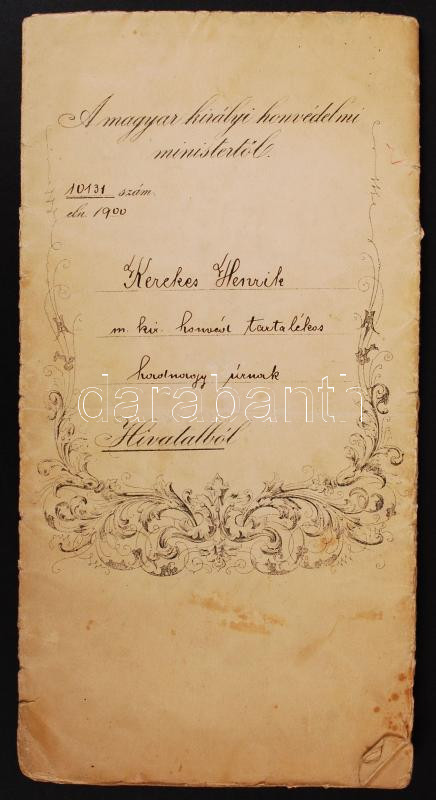 A magyar királyi honvédelmi
ministertől.
10131 szám.
eln. 1900
Kerekes Henrik
m. kir. honvéd tartalékos
hadnagy úrnak
darabanth
Hivatalból